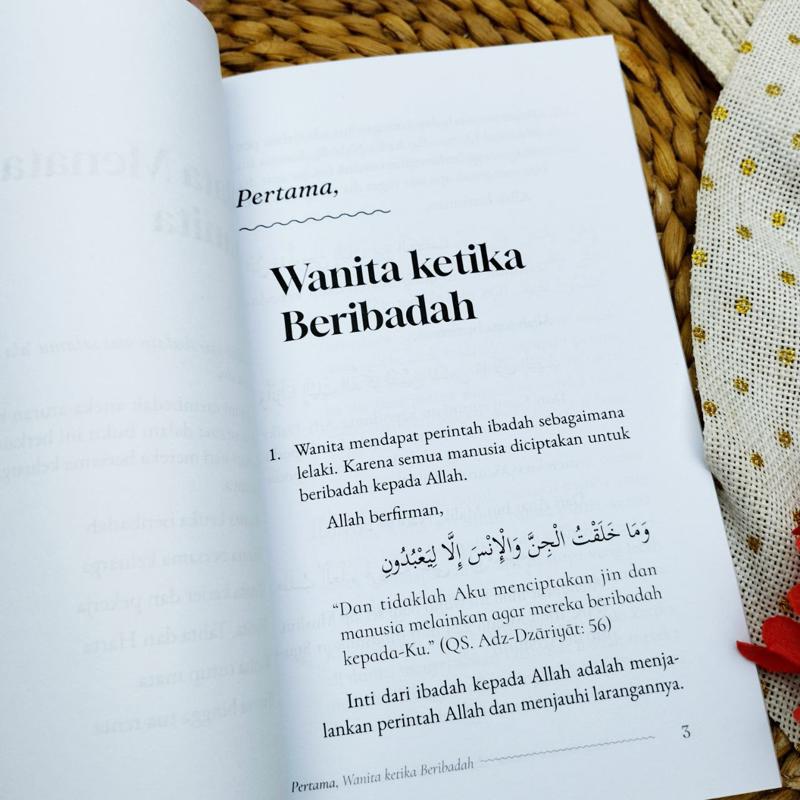 Pertama,
Wanita ketika
Beribadah
1. Wanita mendapat perintah ibadah sebagaimana
lelaki. Karena semua manusia diciptakan untuk
beribadah kepada Allah.
Allah berfirman,
وَمَا خَلَقْتُ الْجِنَّ وَالْإِنْسَ إِلَّا لِيَعْبُدُونِ
“Dan tidaklah Aku menciptakan jin dan
manusia melainkan agar mereka beribadah
kepada-Ku.” (QS. Adz-Dzāriyāt: 56)
Inti dari ibadah kepada Allah adalah menja-
lankan perintah Allah dan menjauhi larangannya.
Pertama, Wanita ketika Beribadah 3